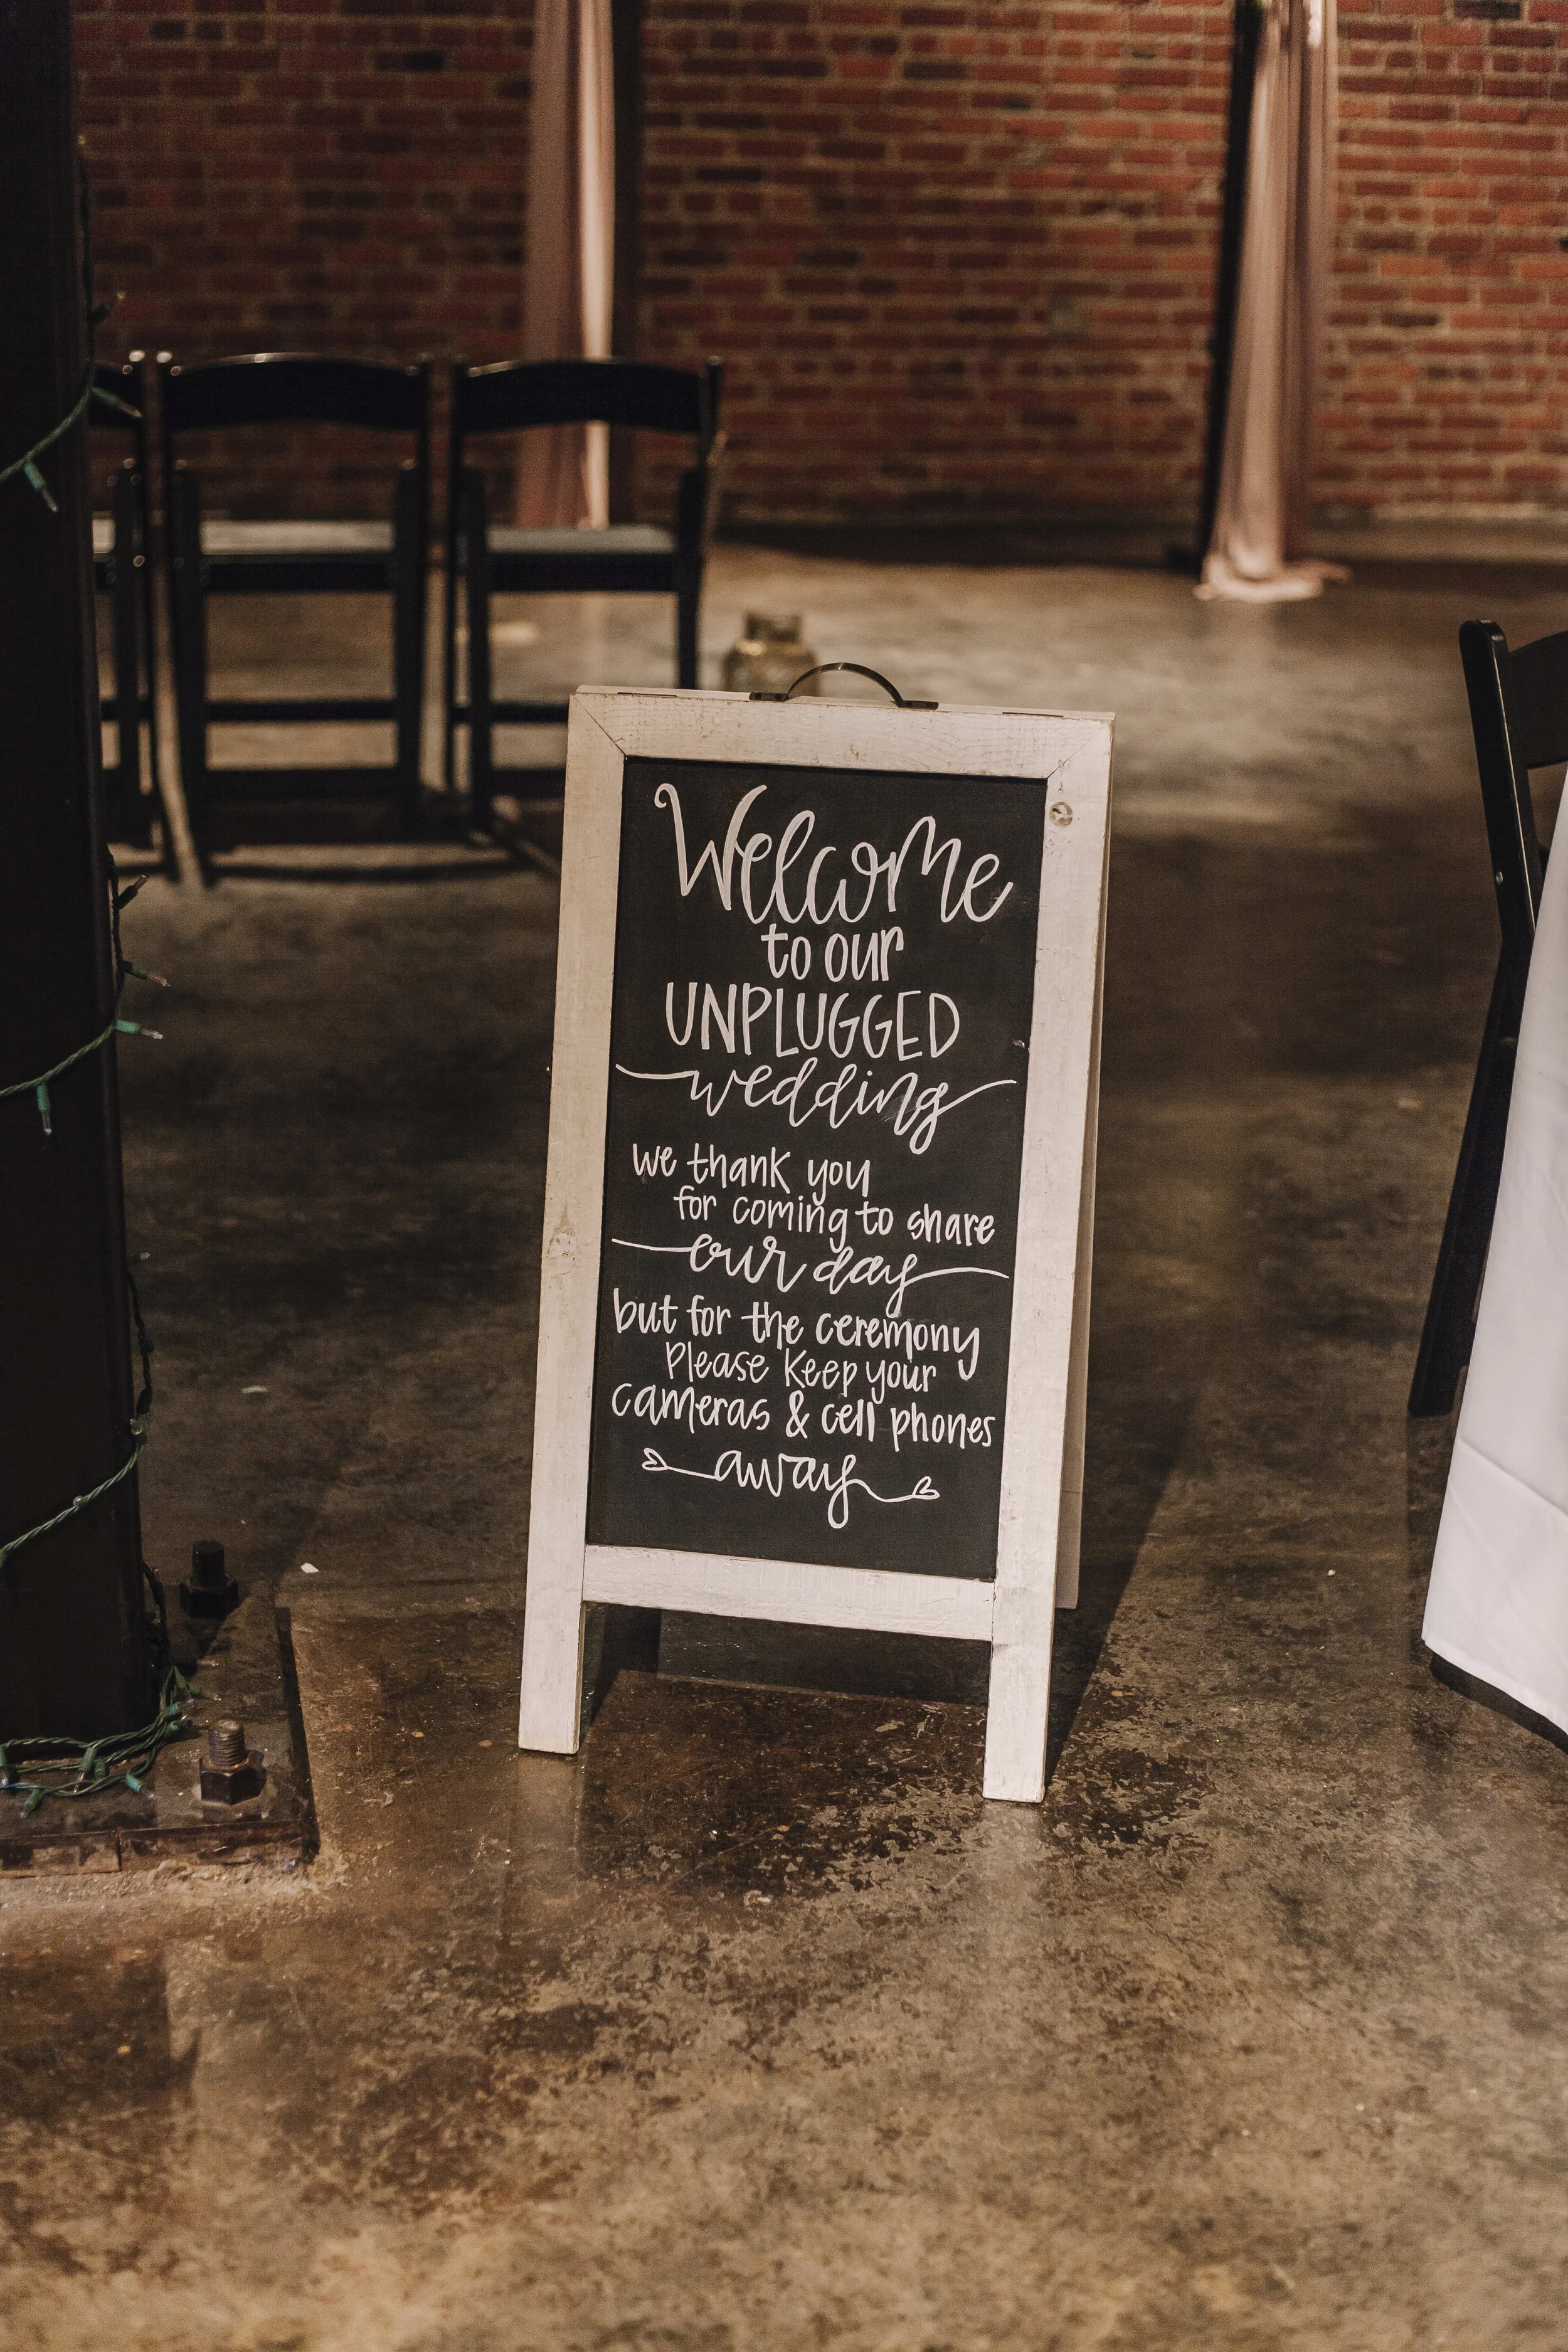 Welcome
to our
UNPLUGGED
wedding
we thank you
for coming to share
our day
but for the ceremony
Please Keep your
cameras & cell phones
away